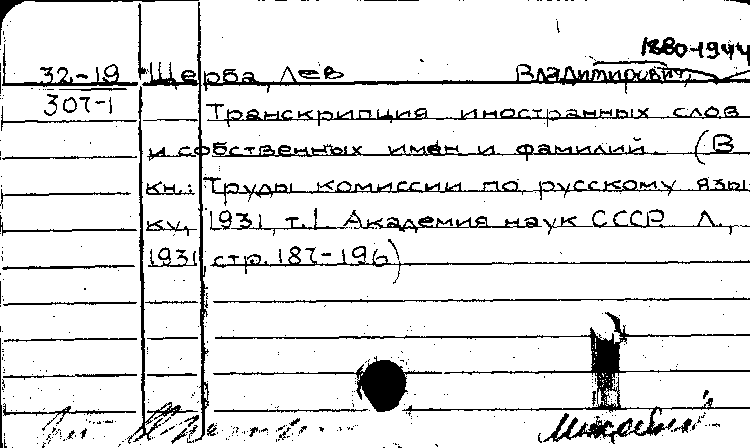 1880-1944
32-19 Щерба, Лев Владимирович,
307-1
Транскрипция иностранных слов
и собственных имен и фамилий. (В
кн.: Труды комиссии по русскому язы
ку, 1931, т.I. Академия наук СССР. Л.,
1931, стр. 187-196)